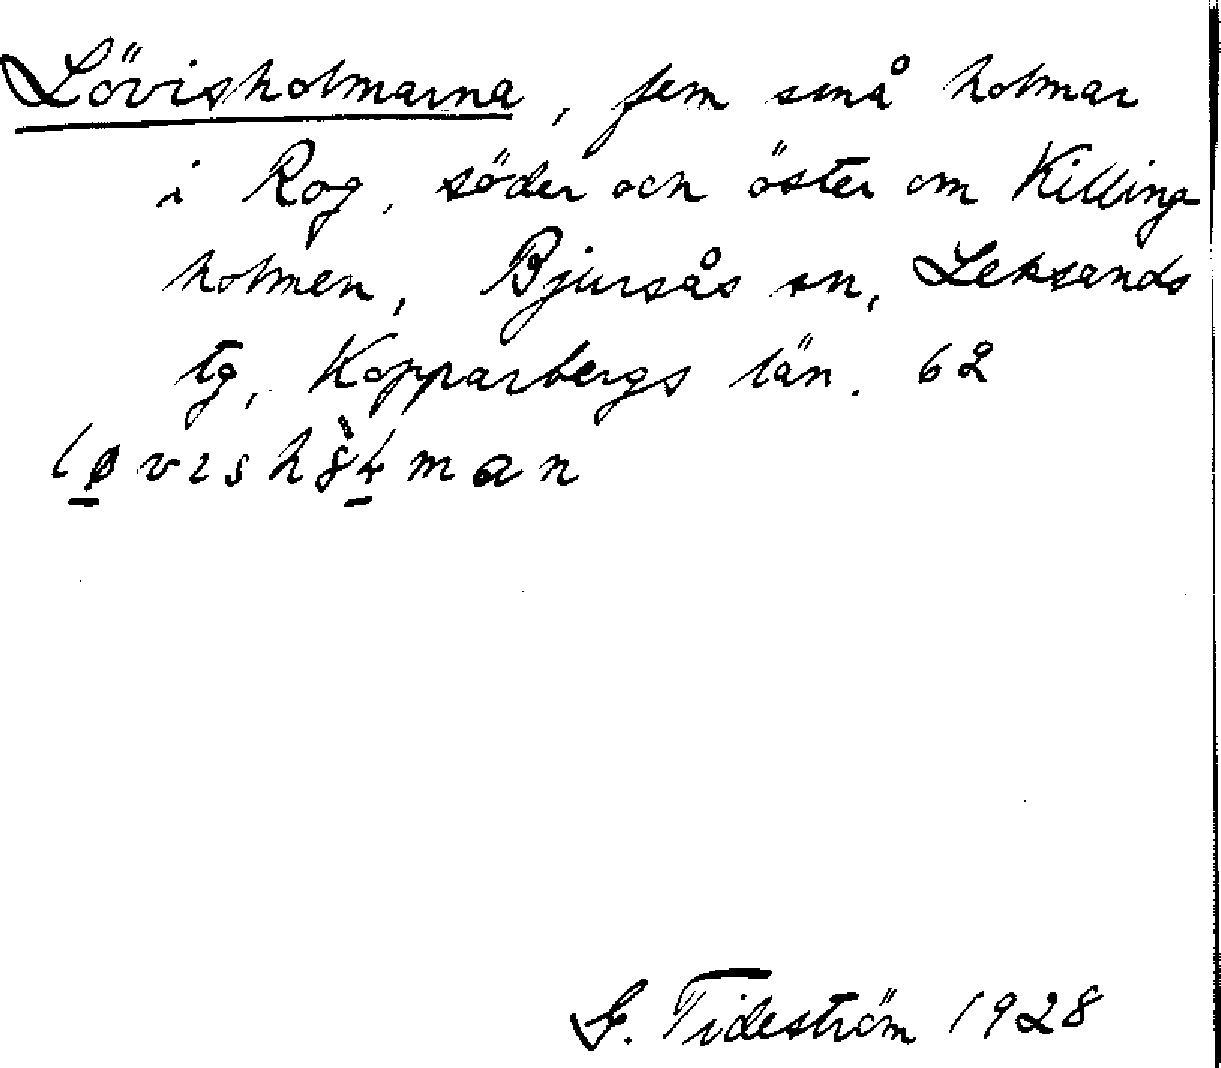 Lövisholmarna, fem små holmar
i Rog, söder och öster om Killing-
holmen, Bjursås sn, Leksands
tg, Kopparbergs län. 62
G. Tideström 1928